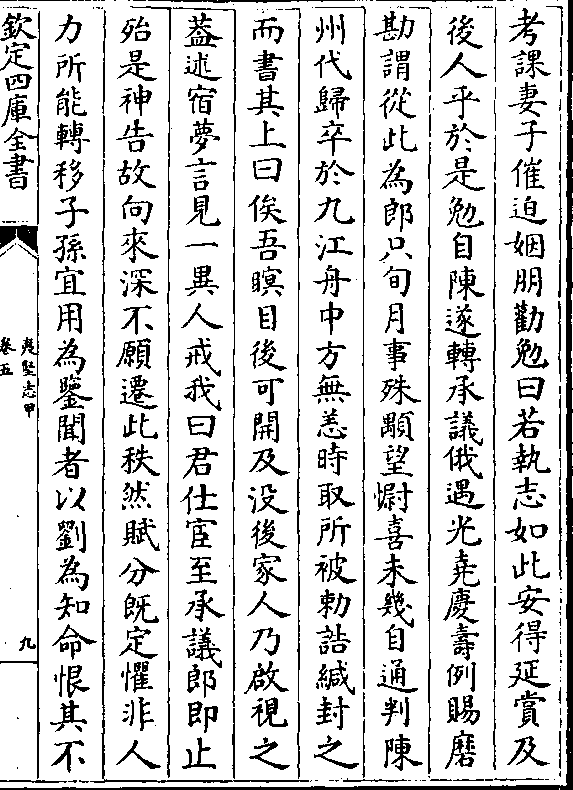 考課妻子催迫姻朋勸勉曰若執志如此安得延賞及
後人乎於是勉自陳遂轉承議俄遇光堯慶壽例賜磨
勘謂從此為郎只旬月事殊顒望慰喜未幾自通判陳
州代歸卒於九江舟中方無恙時取所被勅誥緘封之
而書其上曰俟吾瞑目後可開及没後家人乃啟視之
葢述宿夢言見一異人戒我曰君仕宦至承議郎即止
殆是神告故向來深不願遷此秩然賦分既定懼非人
力所能轉移子孫宜用為鑒聞者以劉為知命恨其不
欽定四庫全書
夷堅志甲
卷五
九